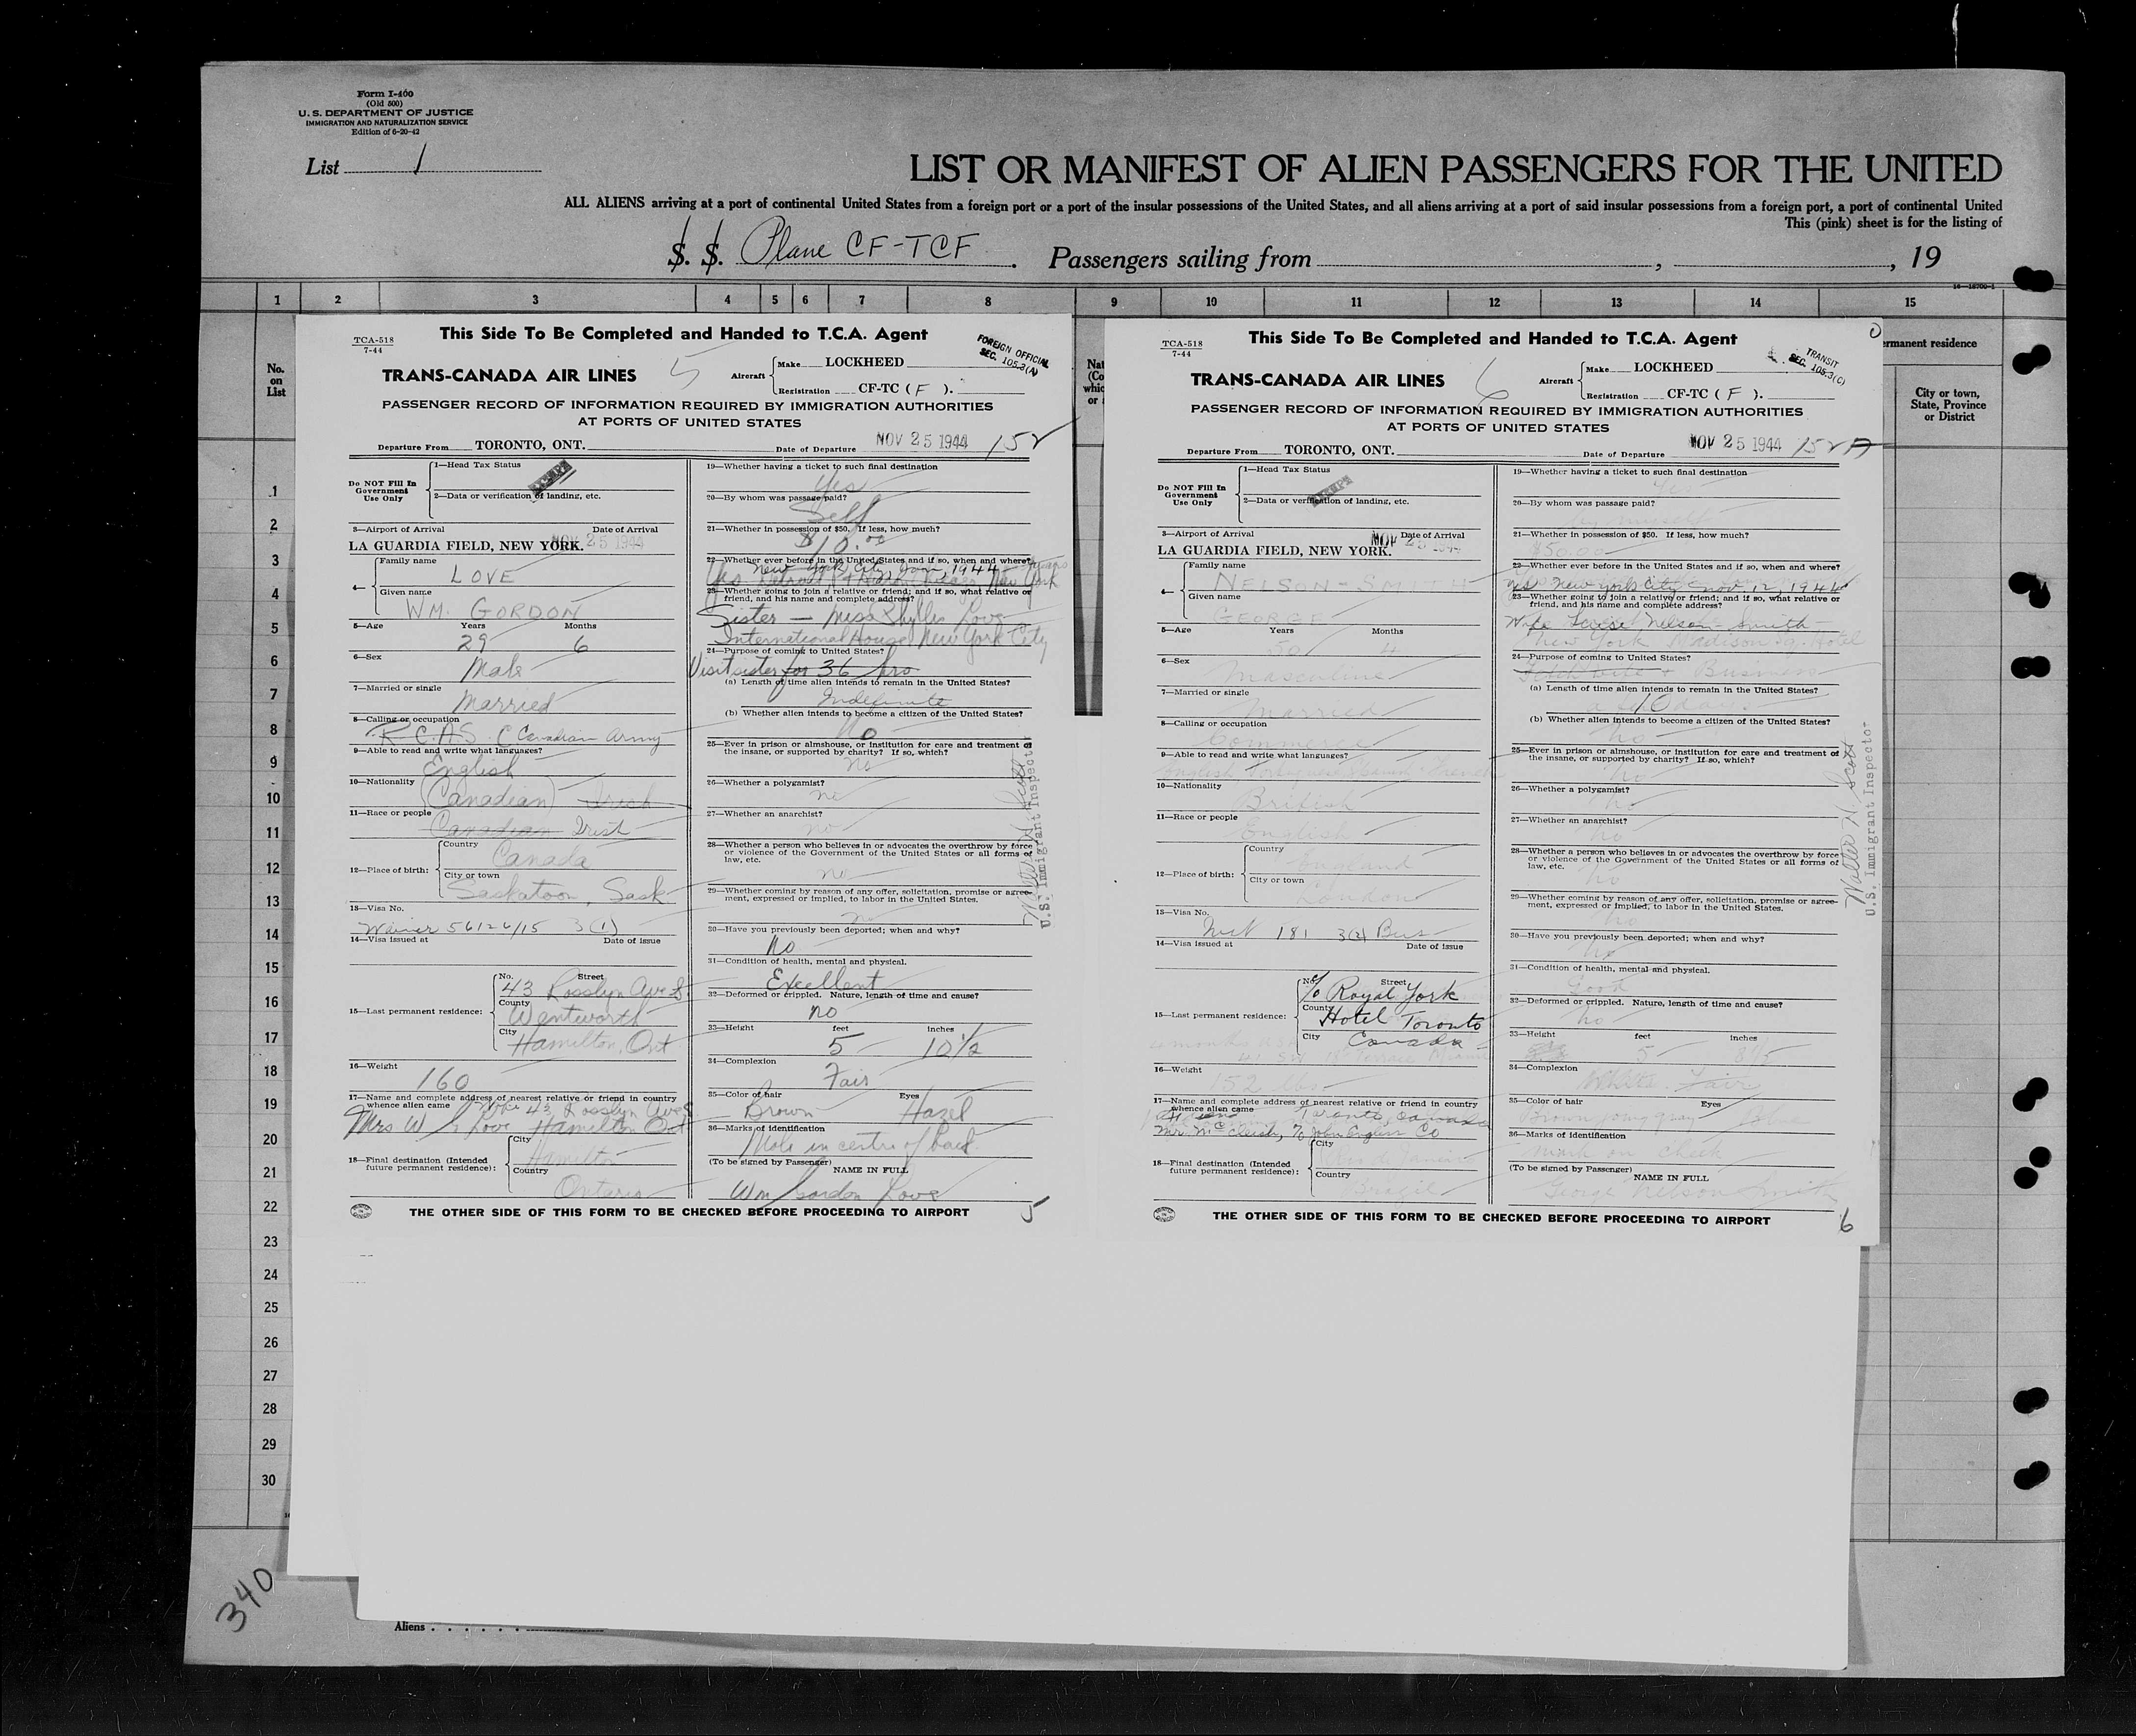 Form I-400
(Old 500)
U. S. DEPARTMENT OF JUSTICE
IMMIGRATION AND NATURALIZATION SERVICE
Edition of 6-20-42
List 1
LIST OR MANIFEST OF ALIEN PASSENGERS FOR THE UNITED
ALL ALIENS arriving at a port of continental United States from a foreign port or a port of the insular possessions of the United States, and all aliens arriving at a port of said insular possessions from a foreign port, a port of continental United
This (pink) sheet is for the listing of
S. S. Plane CF-TCF. Passengers sailing from , , 19
1 2 3 4 5 6 7 8 9 10 11 12 13 14 15
No. on List
ermanent residence
City or town, State, Province or District
1
2
3
4
5
6
7
8
9
10
11
12
13
14
15
16
17
18
19
20
21
22
23
24
25
26
27
28
29
30
This Side To Be Completed and Handed to T.C.A. Agent
TCA-518
7-44
FOREIGN OFFICIAL
SEC. 105.3(A)
TRANS-CANADA AIR LINES
5
Aircraft Make LOCKHEED
Registration CF-TC ( F ).
PASSENGER RECORD OF INFORMATION REQUIRED BY IMMIGRATION AUTHORITIES
AT PORTS OF UNITED STATES
Departure From TORONTO, ONT. Date of Departure NOV 25 1944
Do NOT Fill In Government Use Only
1—Head Tax Status
2—Data or verification of landing, etc.
3—Airport of Arrival Date of Arrival
LA GUARDIA FIELD, NEW YORK. NOV 25 1944
4— Family name
LOVE
Given name
WM. GORDON
5—Age Years Months
29 6
6—Sex
Male
7—Married or single
Married
8—Calling or occupation
R.C.A.S. C Canadian Army
9—Able to read and write what languages?
English
10—Nationality
(Canadian) Irish
11—Race or people
Canadian Irish
12—Place of birth: Country
Canada
City or town
Saskatoon, Sask
13—Visa No.
Waiver 56126/15 3(1)
14—Visa issued at Date of issue
15—Last permanent residence: No. Street
43 Rosslyn Ave S.
County
Wentworth
City
Hamilton, Ont
16—Weight
160
17—Name and complete address of nearest relative or friend in country
whence alien came 43 Rosslyn Ave S
Mrs W G Love Hamilton Ont
18—Final destination (Intended future permanent residence): City
Hamilton
Country
Ontario
19—Whether having a ticket to such final destination
Yes
20—By whom was passage paid?
Self
21—Whether in possession of $50. If less, how much?
$10.00
22—Whether ever before in the United States and if so, when and where?
New York City Jan, 1944
Yes Detroit Chicago New York
23—Whether going to join a relative or friend; and if so, what relative or
friend, and his name and complete address?
Sister — Miss Phyllis Love
International House New York City
24—Purpose of coming to United States?
Visit sister for 36 hrs
(a) Length of time alien intends to remain in the United States?
Indefinite
(b) Whether alien intends to become a citizen of the United States?
No
25—Ever in prison or almshouse, or institution for care and treatment of
the insane, or supported by charity? If so, which?
No
26—Whether a polygamist?
no
27—Whether an anarchist?
no
28—Whether a person who believes in or advocates the overthrow by force
or violence of the Government of the United States or all forms of
law, etc.
no
29—Whether coming by reason of any offer, solicitation, promise or agree-
ment, expressed or implied, to labor in the United States.
no
30—Have you previously been deported; when and why?
No
31—Condition of health, mental and physical.
Excellent
32—Deformed or crippled. Nature, length of time and cause?
no
33—Height feet inches
5 10½
34—Complexion
Fair
35—Color of hair Eyes
Brown Hazel
36—Marks of identification
Mole in centre of back
(To be signed by Passenger) NAME IN FULL
Wm Gordon Love
U.S. Immigrant Inspector
THE OTHER SIDE OF THIS FORM TO BE CHECKED BEFORE PROCEEDING TO AIRPORT
5
This Side To Be Completed and Handed to T.C.A. Agent
TCA-518
7-44
TRANSIT
SEC. 105.3(C)
TRANS-CANADA AIR LINES
6
Aircraft Make LOCKHEED
Registration CF-TC ( F ).
PASSENGER RECORD OF INFORMATION REQUIRED BY IMMIGRATION AUTHORITIES
AT PORTS OF UNITED STATES
Departure From TORONTO, ONT. Date of Departure NOV 25 1944
Do NOT Fill In Government Use Only
1—Head Tax Status
2—Data or verification of landing, etc.
3—Airport of Arrival Date of Arrival
LA GUARDIA FIELD, NEW YORK. NOV 25 1944
4— Family name
NELSON-SMITH
Given name
GEORGE
5—Age Years Months
50 4
6—Sex
Masculine
7—Married or single
Married
8—Calling or occupation
9—Able to read and write what languages?
English Portuguese Spanish French
10—Nationality
British
11—Race or people
English
12—Place of birth: Country
England
City or town
London
13—Visa No.
181 3(2) Bus
14—Visa issued at Date of issue
15—Last permanent residence: No. Street
c/o Royal York
County
Hotel Toronto
City
Canada
16—Weight
152 lbs
17—Name and complete address of nearest relative or friend in country
whence alien came Toronto, Canada
Mr. McCleish, c/o John Co
18—Final destination (Intended future permanent residence): City
Rio de Janeiro
Country
Brazil
19—Whether having a ticket to such final destination
20—By whom was passage paid?
21—Whether in possession of $50. If less, how much?
$50.00
22—Whether ever before in the United States and if so, when and where?
yes New York City Nov. 12, 1944
23—Whether going to join a relative or friend; and if so, what relative or
friend, and his name and complete address?
Wife Louise Nelson-Smith
New York Madison Sq. Hotel
24—Purpose of coming to United States?
Business
(a) Length of time alien intends to remain in the United States?
10 days.
(b) Whether alien intends to become a citizen of the United States?
no
25—Ever in prison or almshouse, or institution for care and treatment of
the insane, or supported by charity? If so, which?
no
26—Whether a polygamist?
no
27—Whether an anarchist?
no
28—Whether a person who believes in or advocates the overthrow by force
or violence of the Government of the United States or all forms of
law, etc.
no
29—Whether coming by reason of any offer, solicitation, promise or agree-
ment, expressed or implied, to labor in the United States.
no
30—Have you previously been deported; when and why?
no
31—Condition of health, mental and physical.
Good
32—Deformed or crippled. Nature, length of time and cause?
no
33—Height feet inches
5
34—Complexion
White. Fair
35—Color of hair Eyes
36—Marks of identification
Mark on cheek
(To be signed by Passenger) NAME IN FULL
George Nelson Smith
Walter N. Scott
U.S. Immigrant Inspector
THE OTHER SIDE OF THIS FORM TO BE CHECKED BEFORE PROCEEDING TO AIRPORT
6
340
Aliens